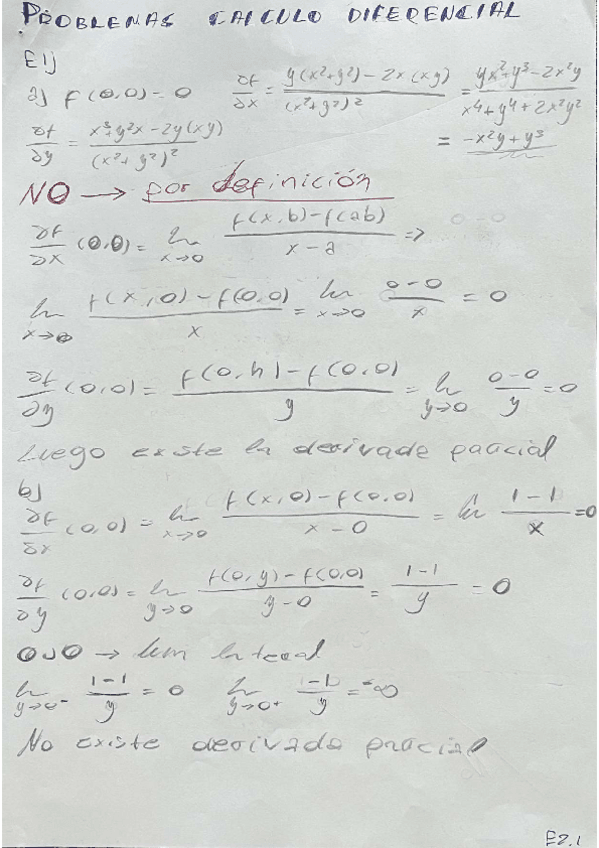 PROBLEMAS CALCULO DIFERENCIAL
E1)
a) f(0,0) = 0 ∂f/∂x = (y(x²+y²) - 2x(xy))/(x²+y²)² = (yx²+y³-2x²y)/(x⁴+y⁴+2x²y²)
∂f/∂y = (x³+y²x-2y(xy))/(x²+y²)² = -x²y+y³
NO → por definición
∂f/∂x (0,0) = lim x→0 (f(x,b)-f(ab))/(x-a) ⇒ 0-0
lim x→0 (f(x,0)-f(0,0))/x = lim x→0 (0-0)/x = 0
∂f/∂y (0,0) = (f(0,h)-f(0,0))/y = lim y→0 (0-0)/y = 0
Luego existe la derivada parcial
b)
∂f/∂x (0,0) = lim x→0 (f(x,0)-f(0,0))/(x-0) = lim (1-1)/x = 0
∂f/∂y (0,0) = lim y→0 (f(0,y)-f(0,0))/(y-0) = (1-1)/y = 0
OJO → lim lateral
lim y→0⁻ (1-1)/y = 0 lim y→0⁺ (1-1)/y = -∞
No existe derivada pracial
E2.1